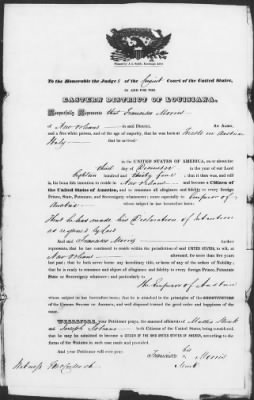 To the Honorable the Judge S of the Circuit Court of the United States,
IN AND FOR THE
EASTERN DISTRICT OF LOUISIANA.
Respectfully Represents that Francisco Morris
of New Orleans in said District, An Alien,
and a free white person, and of the age of majority, that he was born at in Austrian
Italy that he
in the UNITED STATES OF AMERICA, on or about the
third day of December in the year of our Lord
Eighteen hundred and thirty five that it then was, and still
is his bona fide intention to reside in New Orleans and become a Citizen of
the United States of America, and to renounce all allegiance and fidelity to every foreign
Prince, State, Potentate, and Sovereignty whatsoever; and more especially to Emperor of
Austria whose subject he was heretofore
That he has made his Declaration of Intention
as required by law
And said Francisco Morris further
represents that he has continued to reside within the jurisdiction of said UNITED STATES, to wit, at
New Orleans aforesaid, for more than five years
last past; that he doth never borne any hereditary title, or been of any of the orders of Nobility;
that he is ready to renounce and abjure all allegiance and fidelity to every foreign Prince, Potentate
State or Sovereignty whatsoever and particularly to
The Emperor of Austria
whose subject he has heretofore been; that he is attached to the principles of the CONSTITUTION
of the United States of America, and well disposed toward the good order and happiness of the
same.
WHEREFORE, Your Petitioner prays, the annexed affidavits of
and Joseph both Citizens of the United States, being considered, that
he may be admitted to become a CITIZEN OF THE SAID UNITED STATES OF AMERICA, according to the
forms of the Statutes in such case made and provided.
And your Petitioner will ever pray.
his
Francisco x Morris
mark
Witness